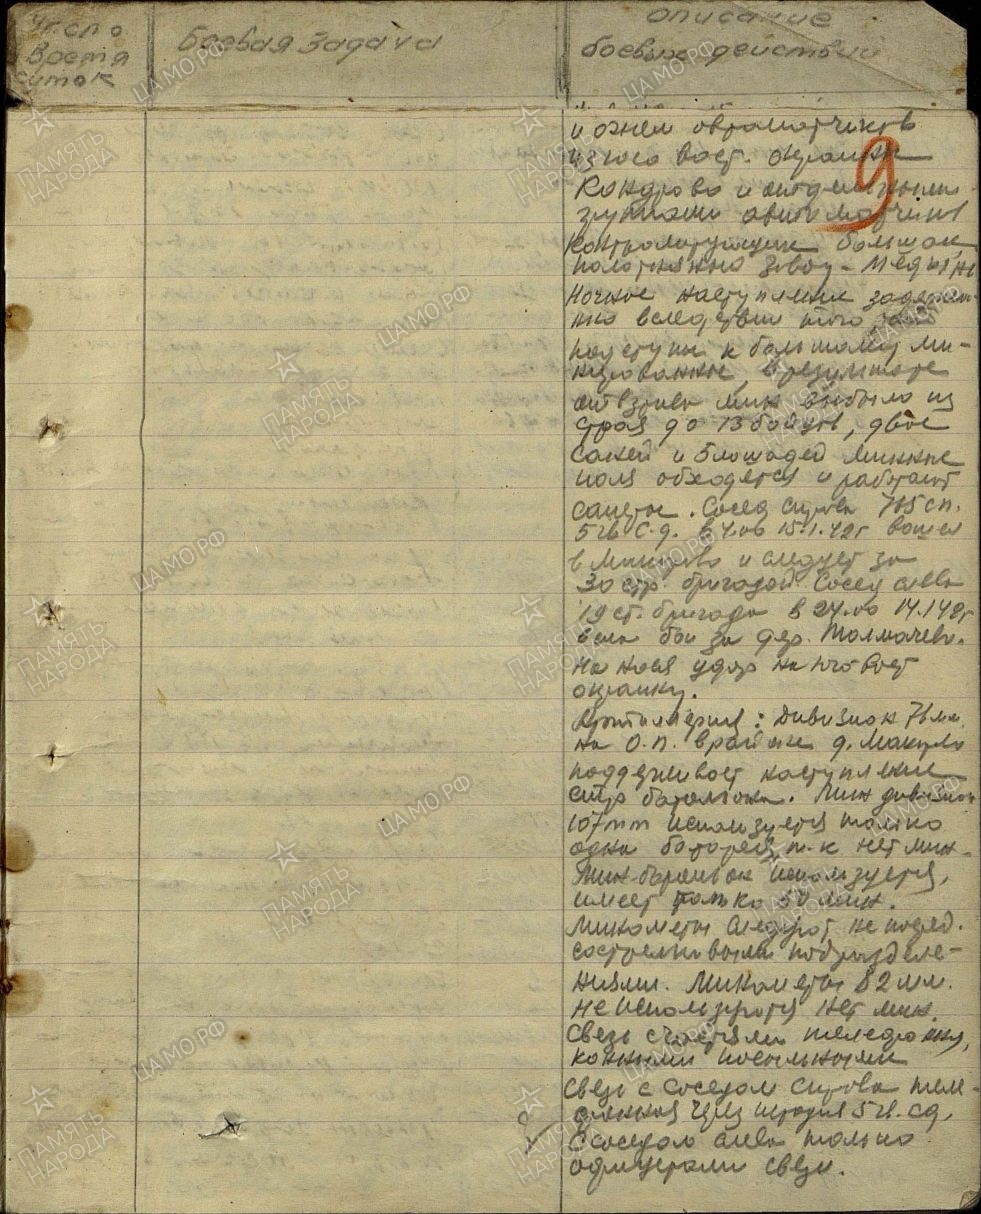 Число
Время
суток
Боевая Задача
описание
боевых действий
9
и огнем автоматчиков
из юго вост. окраины
Кондрово и отдельными
группами автоматчиков
контролирующие большак
полотняный завод - Медынь
Ночное наступление задержано
вследствии того
подступы к большаку ми-
нированные, в результате
от взрыва мин выбыло из
строя до 13 бойцов, двое
саней и 6 лошадей минные
поля обходятся и работают
саперы. Сосед справа 765 сп.
5 гв. с.д. в 4.00 15.1.42г вышел
в и следует за
30 стр. бригадой. Сосед слева
19 ст. бригада в 24.00 14.1.42г
вела бой за дер. Толмачево.
Нанося удар на юговост
окраину.
Артиллерия: Дивизион 76 мм.
на О.П. в районе д.
поддерживает наступление
стр батальона. Мин дивизион
107 mm используется только
одна батарея, т.к нет мин.
Мин-батальон используется,
имеет только 50 мин.
Минометы следуют не позад.
со стрелковыми подразделе-
ниями. Минометы 82 мм.
не используются нет мин.
Связь с частями телефонная,
конными посыльными
Связь с соседом справа теле-
фонная через штадив 5 гв. сд,
С соседом слева только
офицерами связи.